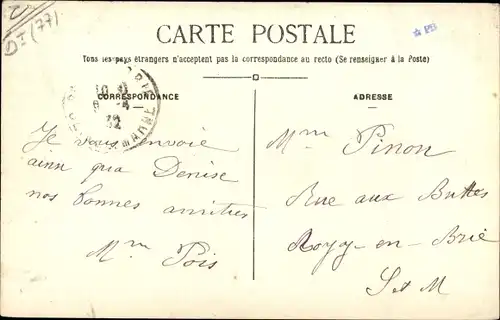 DT (77)
CARTE POSTALE
* PB
Tous les pays étrangers n'acceptent pas la correspondance au recto (Se renseigner à la Poste)
CORRESPONDANCE
ADRESSE
Je vous envoie
ainsi qua Denise
nos bonnes amitiés
Mme Pois
Mme Pinon
Rue aux Buttes
Rozoy-en-Brie
S et M
BRIE
MARNE
32